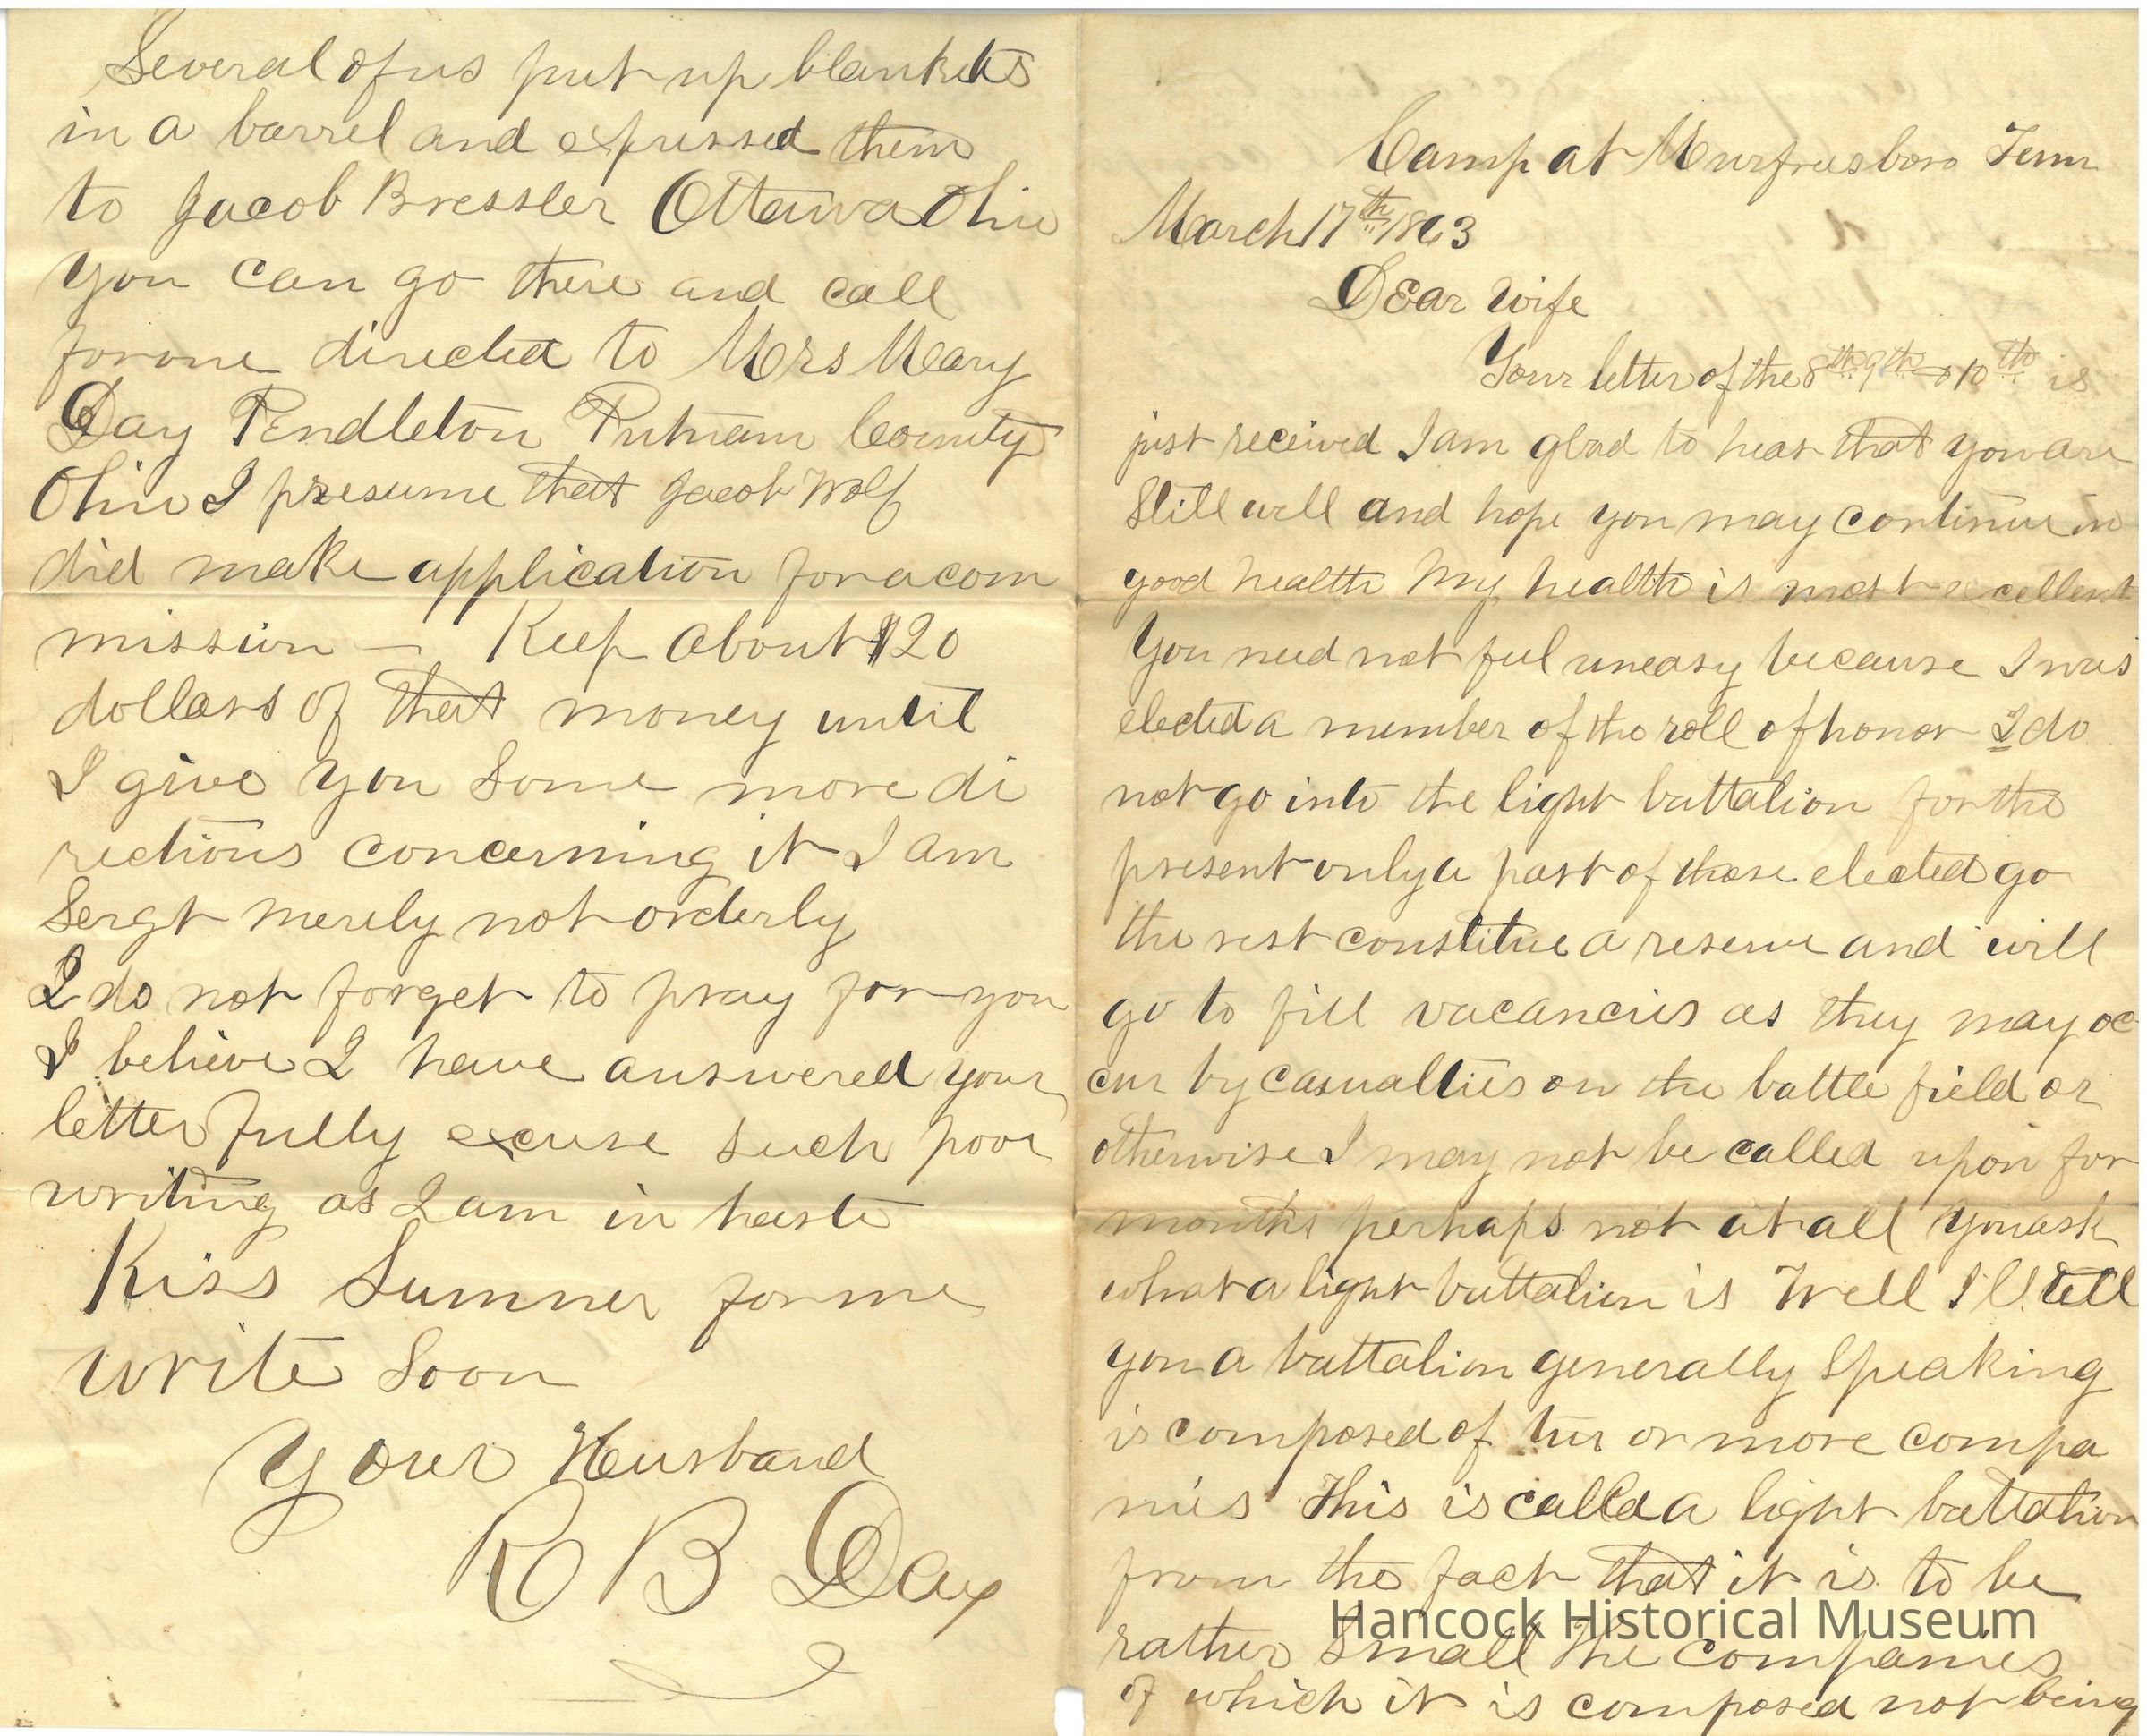 Camp at Murfreesboro Tenn
March 17th 1863
Dear Wife
Your letter of the 8th 9th & 10th is
just received I am glad to hear that you are
Still well and hope you may continue in
good health My health is most excellent
You need not feel uneasy because I was
elected a member of the roll of honor I do
not go into the light battalion for the
present only a part of those elected go
the rest constitue a reserve and will
go to fill vacancies as they may oc
cur by casualties on the battle field or
otherwise I may not be called upon for
months perhaps not at all You ask
what a light battalion is Well I'll tell
you a battalion generally Speaking
is composed of two or more compa
nies This is called a light battalion
from the fact that it is to be
rather Small The companies
of which it is composed not being
Several of us put up blankets
in a barrel and expressed them
to Jacob Bressler Ottawa Ohio
You can go there and call
for one directed to Mrs Mary
Day Pendleton Putnam County
Ohio I presume that Jacob Wolf
did make application for a com
mission — Keep about $20
dollars of that money until
I give you Some more di
rections concerning it I am
Sergt merely not orderly
I do not forget to pray for you
I believe I have answered your
letter fully excuse such poor
writing as I am in haste
Kiss Sumner for me
write Soon
Your Husband
R B Day
Hancock Historical Museum